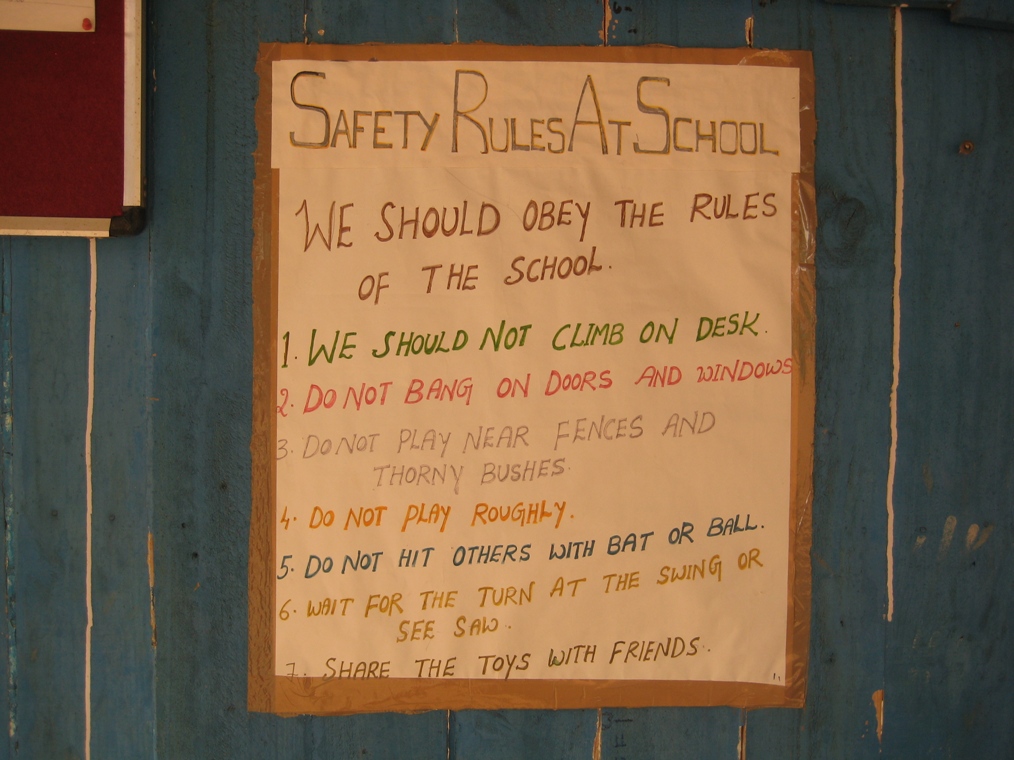 SAFETY RULES AT SCHOOL
WE SHOULD OBEY THE RULES
OF THE SCHOOL.
1. WE SHOULD NOT CLIMB ON DESK.
2. DO NOT BANG ON DOORS AND WINDOWS
3. DO NOT PLAY NEAR FENCES AND
THORNY BUSHES.
4. DO NOT PLAY ROUGHLY.
5. DO NOT HIT OTHERS WITH BAT OR BALL.
6. WAIT FOR THE TURN AT THE SWING OR
SEE SAW.
7. SHARE THE TOYS WITH FRIENDS..